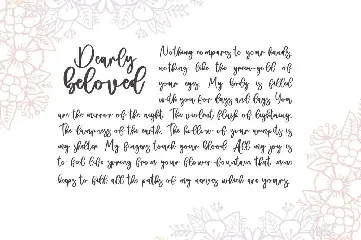 Dearly
beloved
Nothing compares to your hands,
nothing like the green-gold of
your eyes. My body is filled
with you for days and days. You
are the mirror of the night. The violent flash of lightning.
The dampness of the earth. The hollow of your armpits is
my shelter. My fingers touch your blood. All my joy is
to feel life spring from your flower-fountain that mine
keeps to fill all the paths of my nerves which are yours.